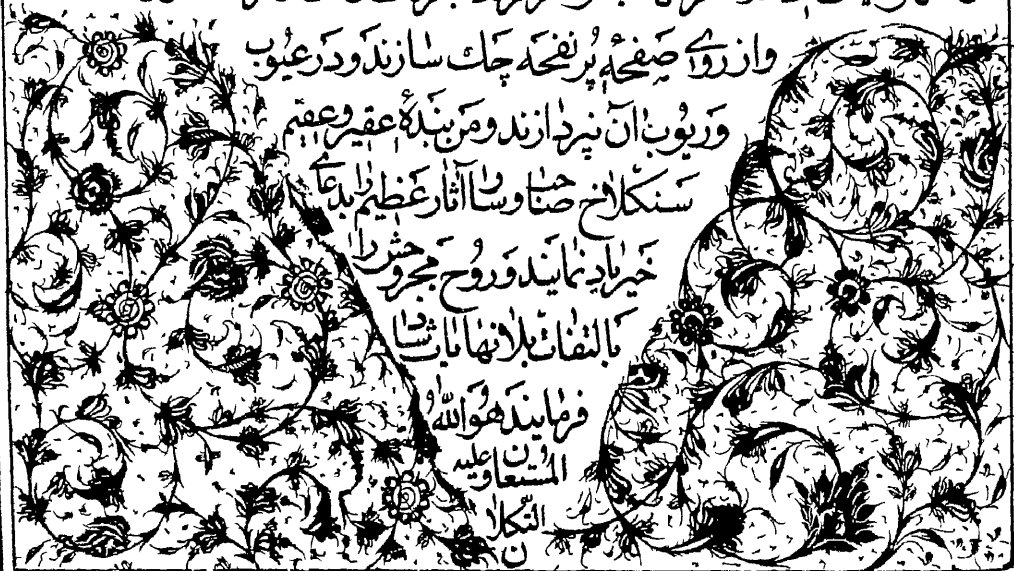 واز روی صفحهٔ پر نفحه چاك سازند و در عیوب
و ریوب آن نپردازند و من بندهٔ عقیر و عقیم
سنکلاخ صاحب و سارا آثار عظیم را بدعای
خیر یاد نمایند و روح مجروحش را
بالتفات بلا نهایات شاد
فرمایند هو اللّٰه
المستعان و علیه
التکلان